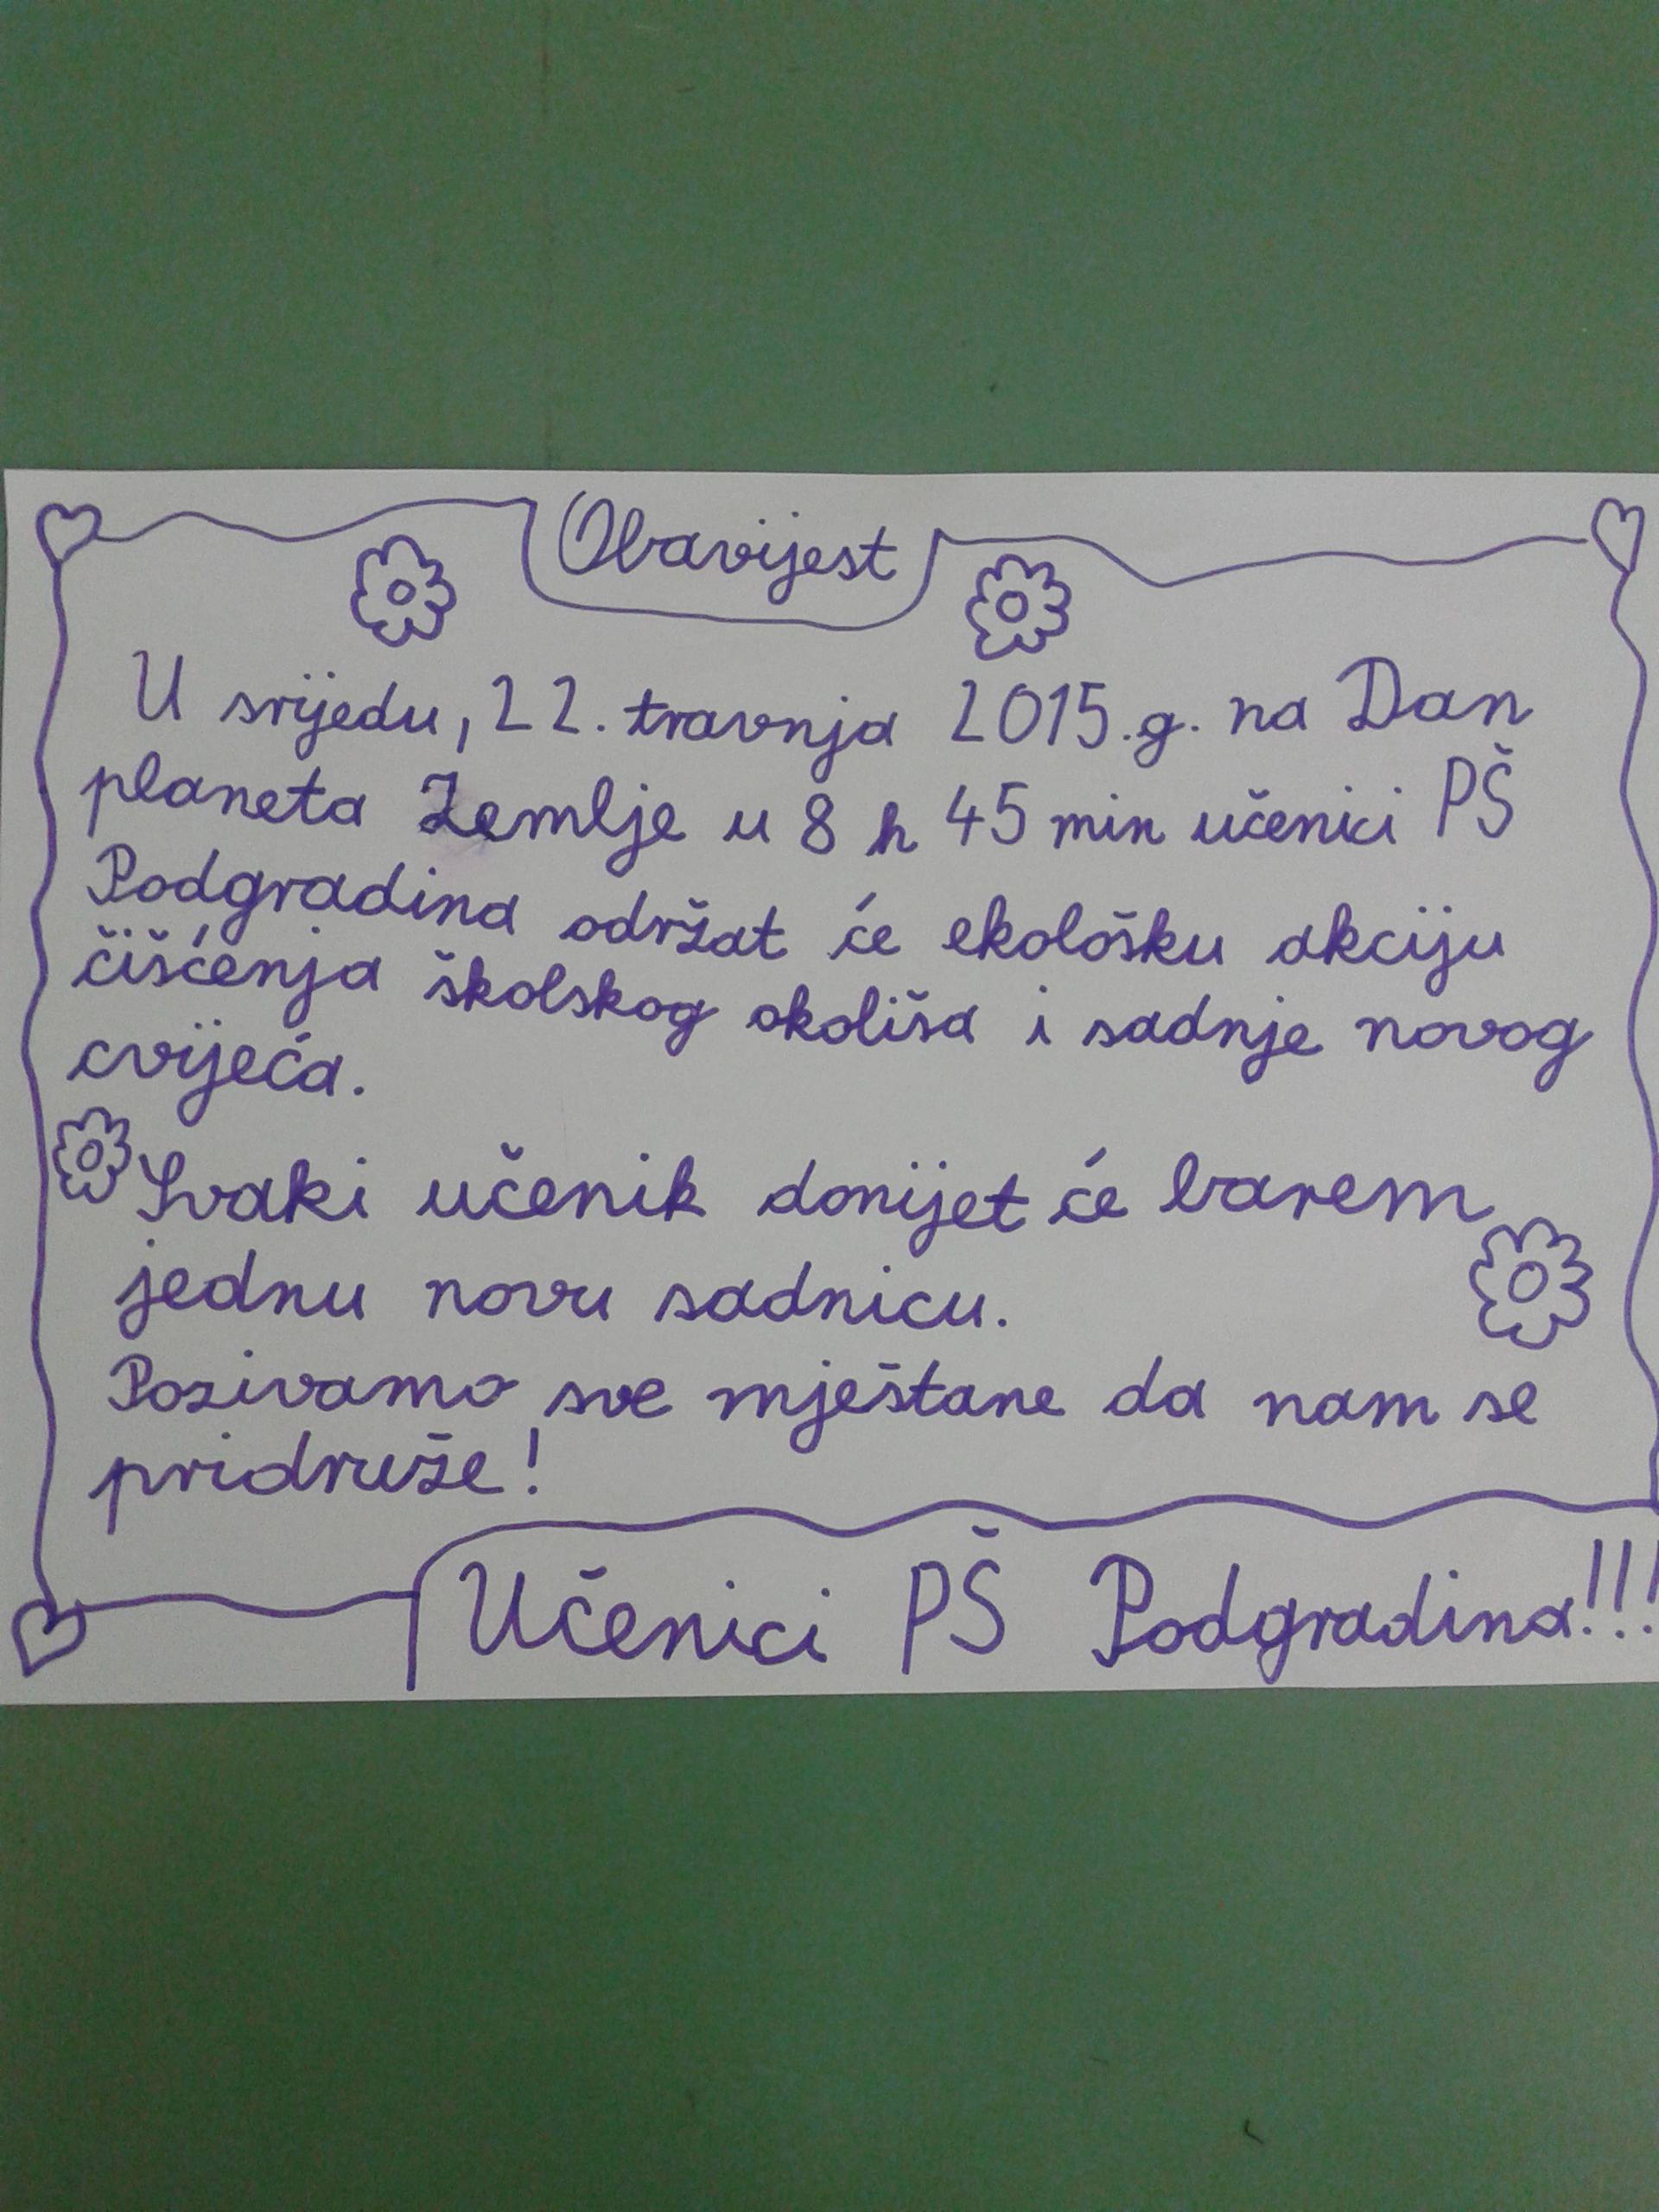 Obavijest
U srijedu, 22. travnja 2015.g. na Dan
planeta Zemlje u 8 h 45 min učenici PŠ
Podgradina održat će ekološku akciju
čišćenja školskog okoliša i sadnje novog
cvijeća.
Svaki učenik donijet će barem
jednu novu sadnicu.
Pozivamo sve mještane da nam se
pridruže!
Učenici PŠ Podgradina!!!